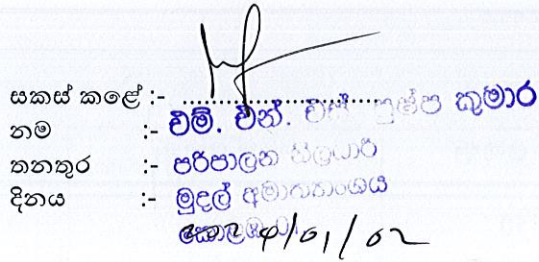 සකස් කළේ :- ....................
නම :- එම්. එන්. එස් පුෂ්ප කුමාර
තනතුර :- පරිපාලන නිලධාරි
දිනය :- මුදල් අමාත්‍යාංශය
කොළඹ 01
4/01/02